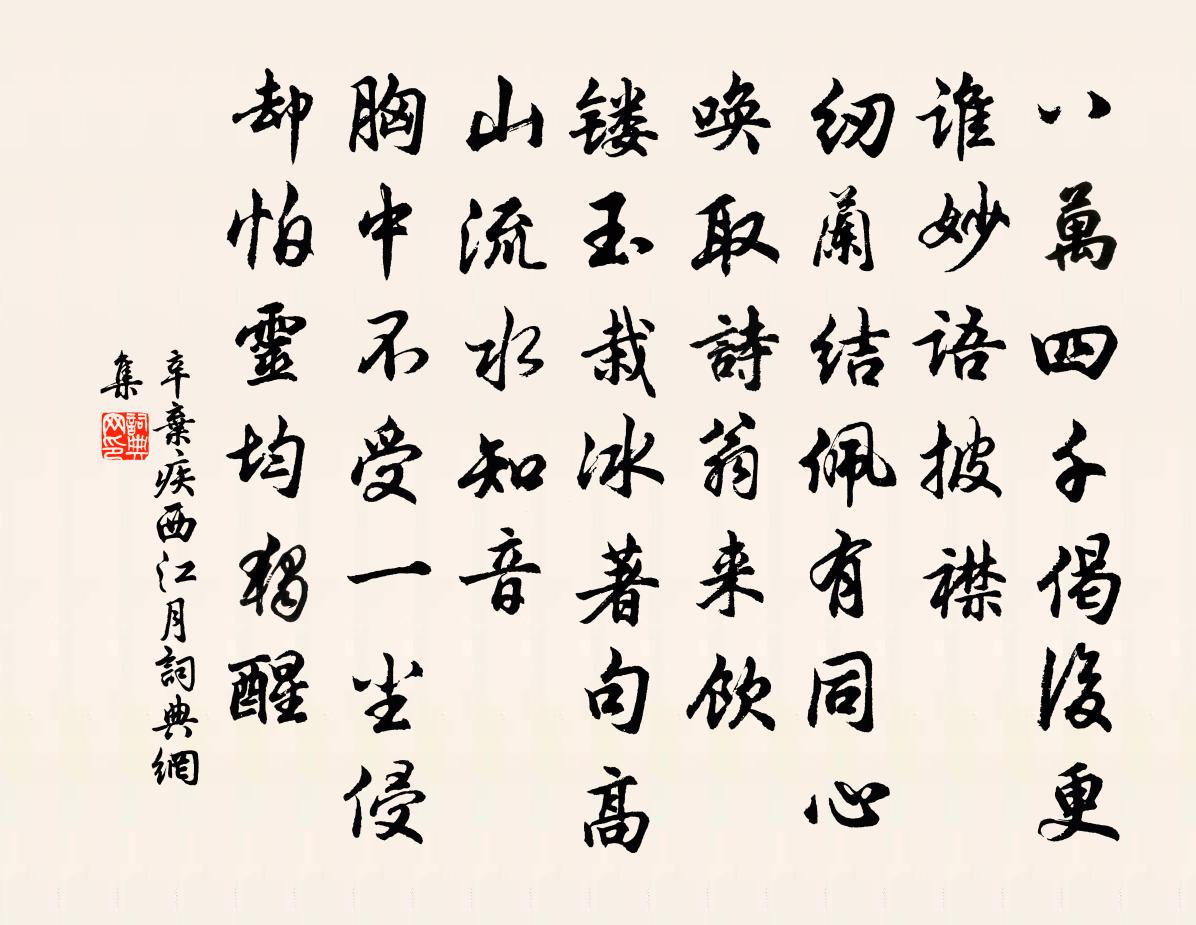 八萬四千偈後更
谁妙语披襟
纫蘭结佩有同心
唤取詩翁来饮
镂玉裁冰著句高
山流水知音
胸中不受一尘侵
却怕靈均独醒
辛棄疾西江月詞典網
集
詞典網印